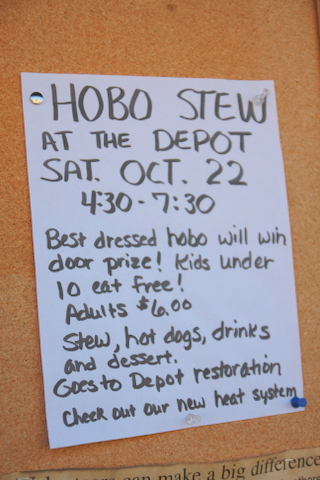 HOBO STEW
AT THE DEPOT
SAT. OCT. 22
4:30-7:30
Best dressed hobo will win
door prize! Kids under
10 eat free!
Adults $6.00
Stew, hot dogs, drinks
and dessert.
Goes to Depot restoration
Check out our new heat system
can make a big difference